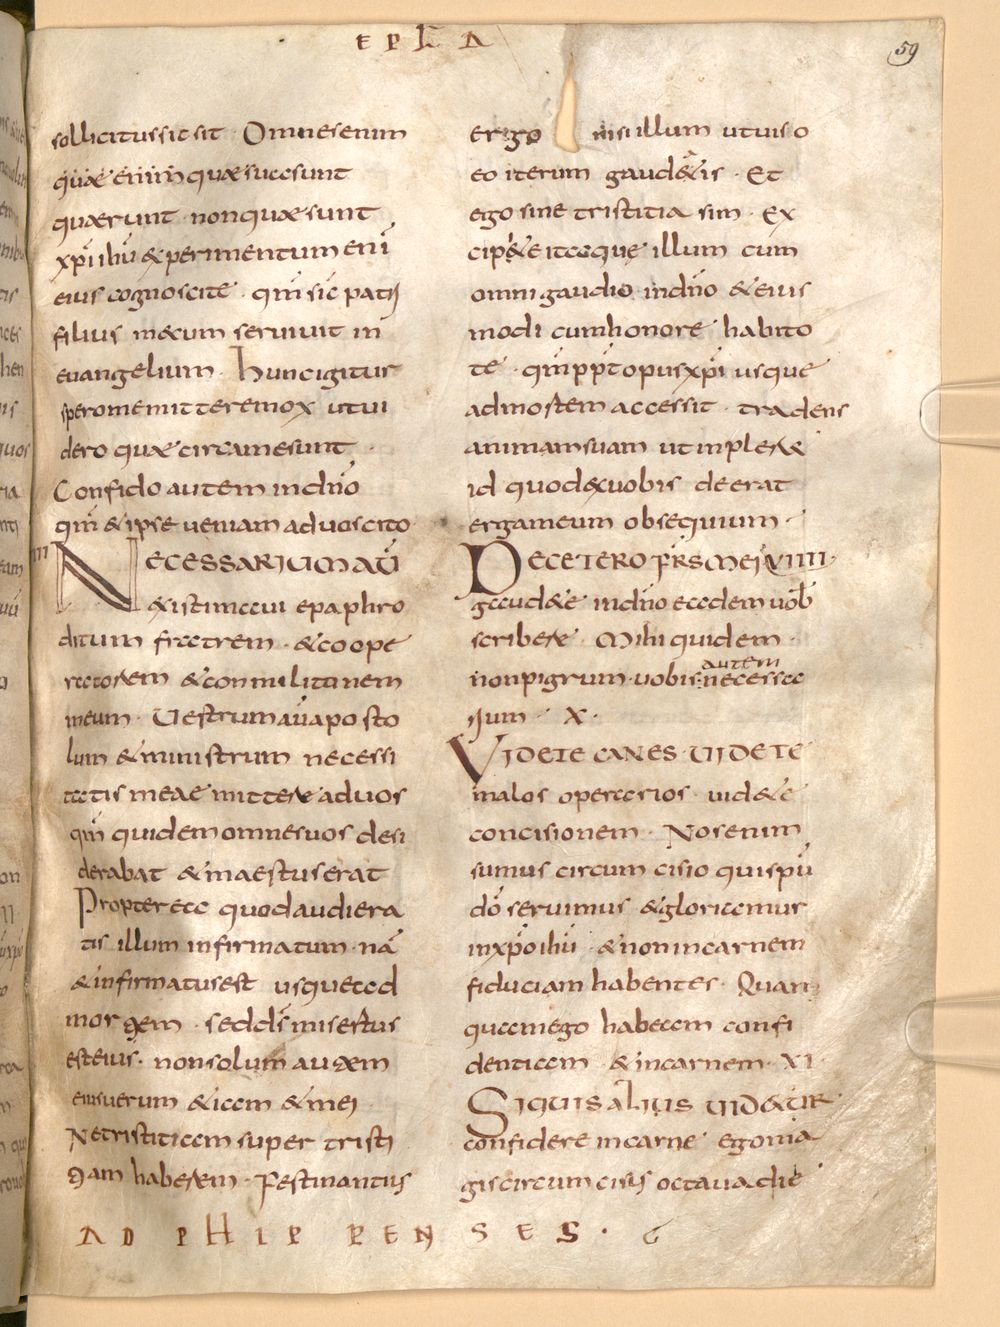 EPLA
59
sollicitus sit sit · Omnes enim
quæ enim quæ suæ sunt
quærunt · non quæ sunt
xpi ihu & perimentum eni
eius cognoscite · qm̄ sic patri
filius mecum servivit in
evangelium · hunc igitur
spero me mittere mox ut vi
dero quæ circa me sunt ·
Confido autem in dn̄o
qm̄ & ipse veniam ad vos cito
III
NECESSARIUM AUT̄
existimavi epaphro
ditum fratrem · & coope
ratorem & conmilitonem
meum · Vestrum aū aposto
lum & ministrum necessi
tatis meae mittere ad vos
qm̄ quidem omnes vos desi
derabat & maestus erat
Propterea quod audiera
tis illum infirmatum · nā
& infirmatus est usque ad
mortem · sed ds̄ misertus
est eius · non solum autem
eius verum & iam & mei
Ne tristitiam super tristi
tiam haberem · Festinantius
ergo misi illum ut viso
eo iterum gaudeatis · Et
ego sine tristitia sim · Ex
cipite itaque illum cum
omni gaudio in dn̄o & eius
modi cum honore habito
te · qm̄ ppt opus xpi usque
ad mortem accessit · tradens
animam suam ut inpleret
id quod ex vobis deerat
erga meum obsequium ·
DE CETERO FR̄S MEI VIIII ·
gaudete in dn̄o eadem vob
scribere · Mihi quidem
non pigrum · vobis autem necessa
rium · X ·
VIDETE CANES VIDETE
malos operarios · videte
concisionem · Nos enim
sumus circumcisio qui spū
dō servimus & gloriamur
in xpo ihu & non in carnem
fiduciam habentes · Quam
quam ego habeam confi
dentiam & in carnem · XI
SI QUIS ALIUS VIDETUR
confidere in carne ego ma
gis circumcisus octava die
AD PHIPPENSES ·